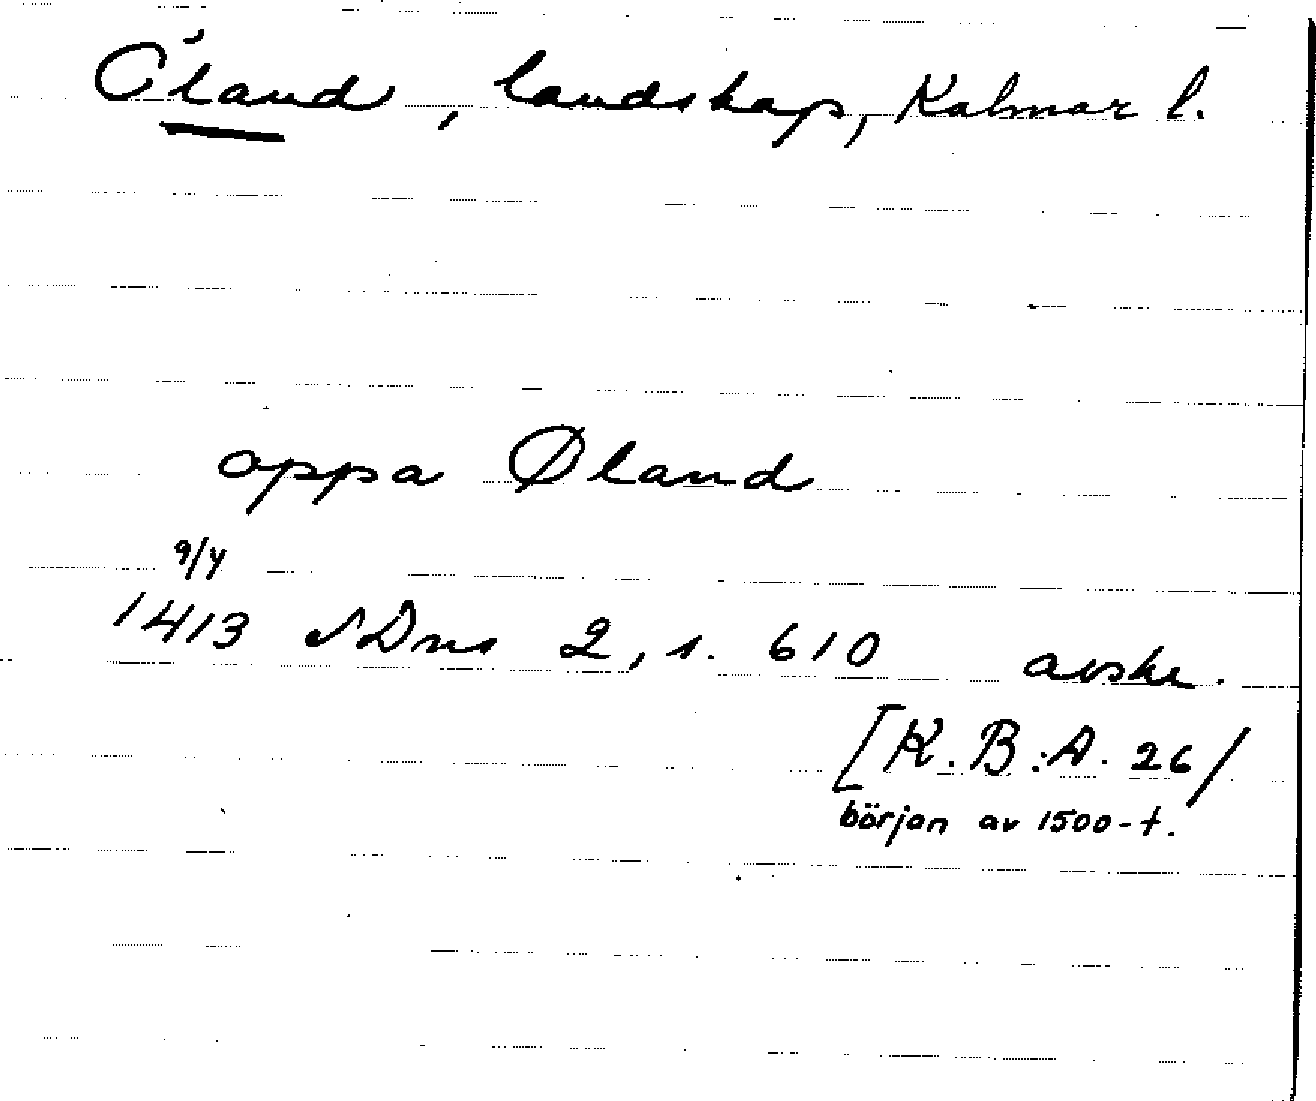 Öland, landskap, Kalmar l.
oppa Øland
9/4
1413 SDns 2, s. 610 avskr.
[K.B.:A. 26/
början av 1500-t.